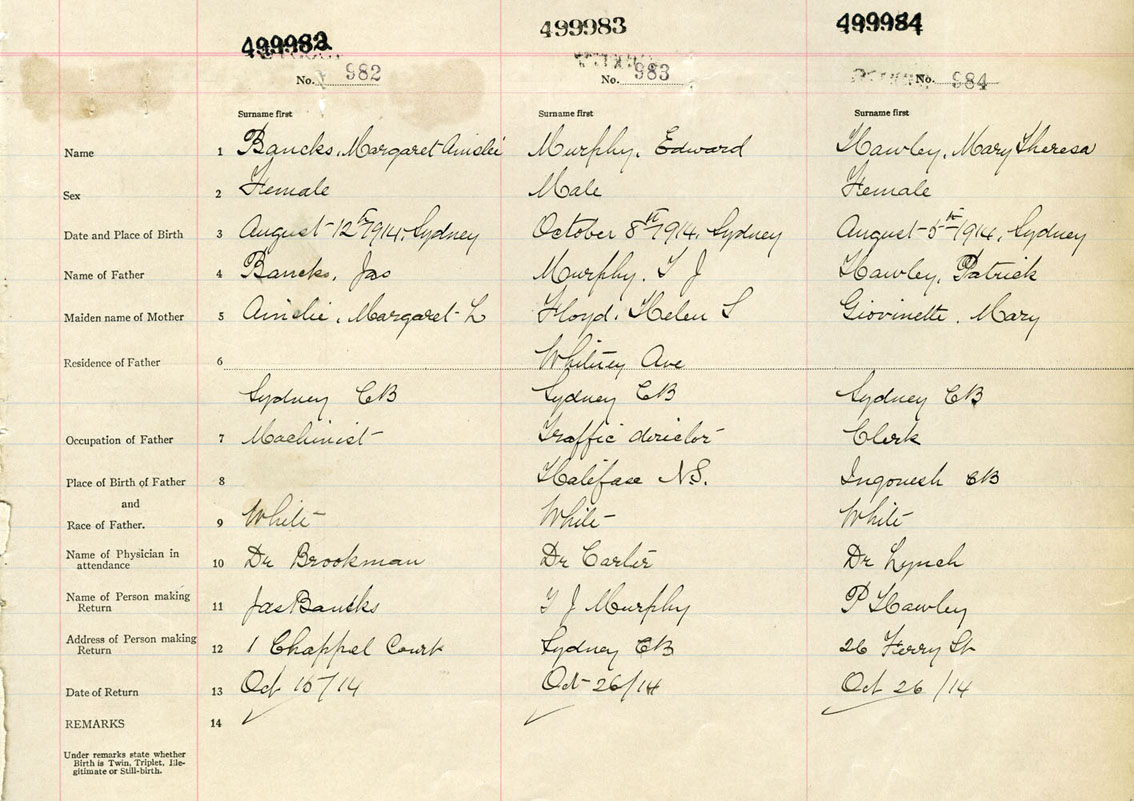 499982 499983 499984
No. 982 No. 983 No. 984
Surname first Surname first Surname first
Name 1 Bancks, Margaret Ainslie Murphy, Edward Hawley, Mary Theresa
Sex 2 Female Male Female
Date and Place of Birth 3 August 12th 1914, Sydney October 8th 1914, Sydney August 5th 1914, Sydney
Name of Father 4 Bancks, Jas Murphy, T J Hawley, Patrick
Maiden name of Mother 5 Ainslie, Margaret L Floyd, Helen S Giovinette, Mary
Residence of Father 6 Whitney Ave
Sydney CB Sydney CB Sydney CB
Occupation of Father 7 Machinist Traffic director Clerk
Place of Birth of Father 8 Halifax N.S. Ingonish CB
and
Race of Father. 9 White White White
Name of Physician in
attendance 10 Dr Brookman Dr Carter Dr Lynch
Name of Person making
Return 11 Jas Bancks T J Murphy P Hawley
Address of Person making
Return 12 1 Chappel Court Sydney CB 26 Ferry St
Date of Return 13 Oct 15/14 Oct 26/14 Oct 26/14
REMARKS 14
Under remarks state whether
Birth is Twin, Triplet, Ille-
gitimate or Still-birth.